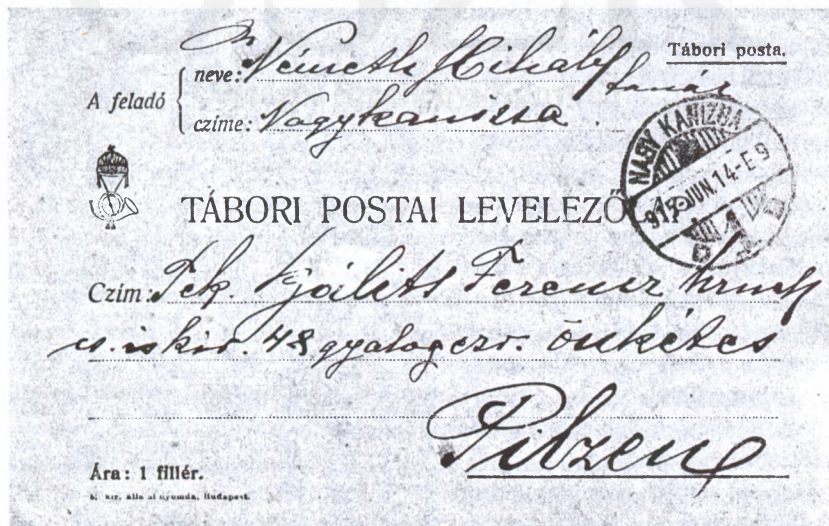 Tábori posta.
A feladó
neve: Németh Mihály tanár
czíme: Nagykanizsa.
NAGY KANIZSA
915 JUN. 14 - E 9
TÁBORI POSTAI LEVELEZŐL
Czím: Tek. Gjálits Ferencz úrnak
cs. és kir. 48 gyalogezr. önkétes
Pilzen
Ára: 1 fillér.
M. kir. állami nyomda, Budapest.